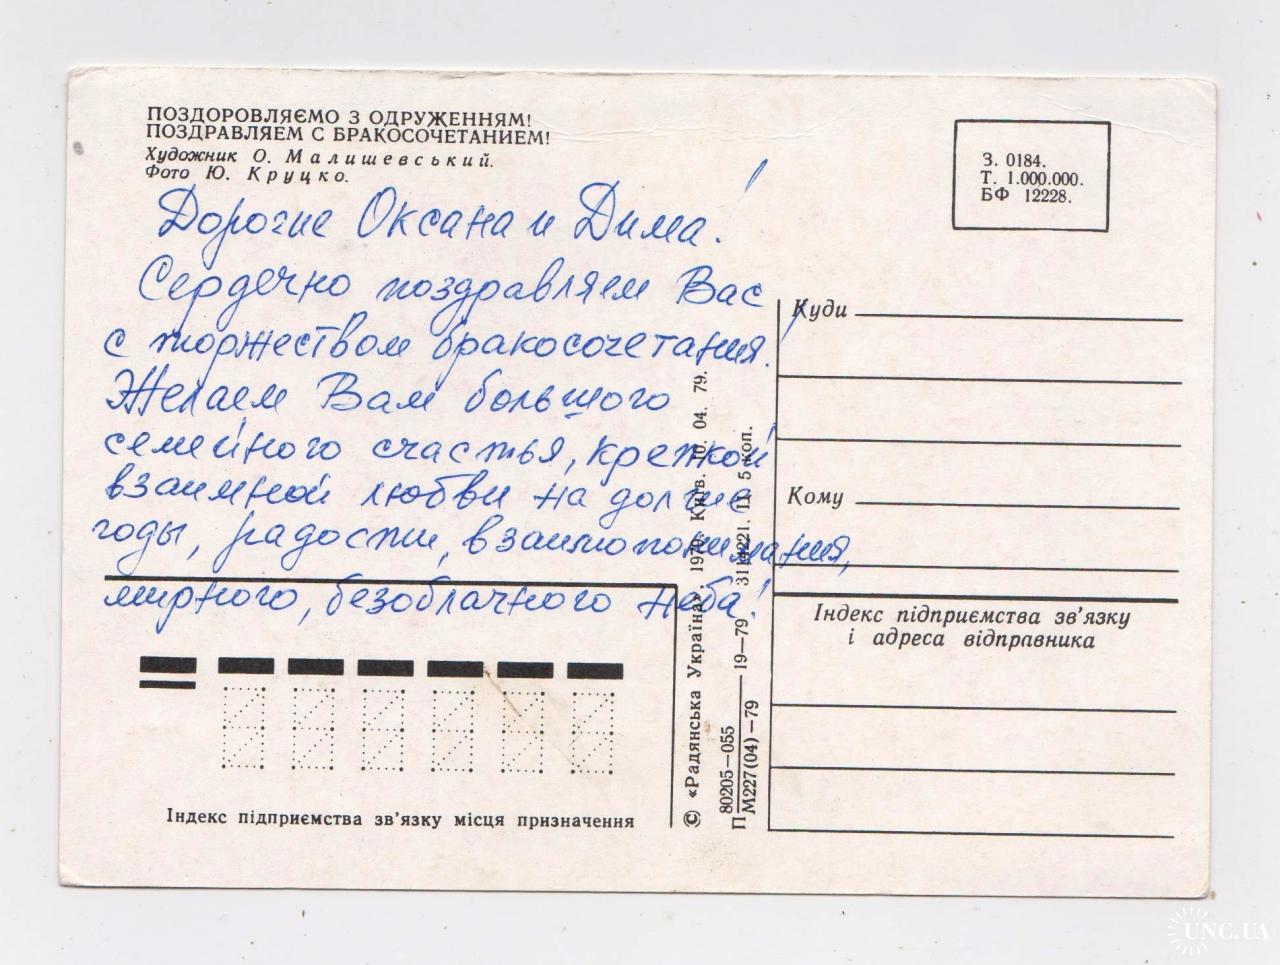 ПОЗДОРОВЛЯЄМО З ОДРУЖЕННЯМ!
ПОЗДРАВЛЯЕМ С БРАКОСОЧЕТАНИЕМ!
Художник О. Малишевський.
Фото Ю. Круцко.
З. 0184.
Т. 1.000.000.
БФ 12228.
Дорогие Оксана и Дима!
Сердечно поздравляем Вас
с торжеством бракосочетания.
Желаем Вам большого
семейного счастья, крепкой
взаимной любви на долгие
годы, радости, взаимопонимания,
мирного, безоблачного неба!
Куди
Кому
Індекс підприємства зв'язку
і адреса відправника
Індекс підприємства зв'язку місця призначення
© «Радянська Україна». 1979. Київ. 10. 04. 79.
80205—055
П М227(04)—79 19—79 Ц. 5 коп.
UNC.UA